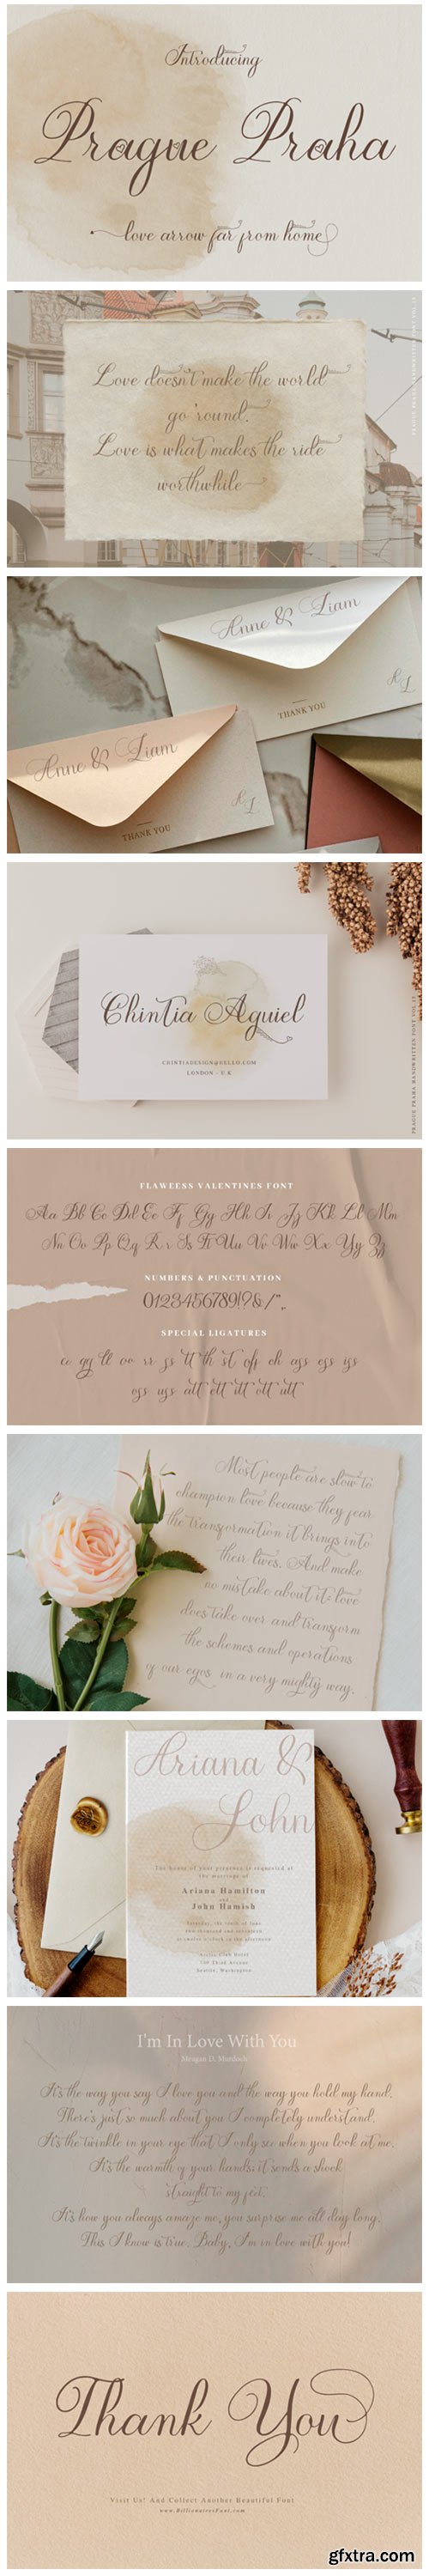 Introducing
Prague Praha
love arrow far from home
Love doesn't make the world
go 'round.
Love is what makes the ride
worthwhile
Anne & Liam
THANK YOU
A
L
Anne & Liam
THANK YOU
A
L
Chintia Aguiel
CHINTIADESIGN@HELLO.COM
LONDON - U.K
PRAGUE PRAHA HANDWRITTEN FONT VOL.15
FLAWEESS VALENTINES FONT
Aa Bb Cc Dd Ee Ff Gg Hh Ii Jj Kk Ll Mm
Nn Oo Pp Qq Rr Ss Tt Uu Vv Ww Xx Yy Zz
NUMBERS & PUNCTUATION
0123456789!?&/",.
SPECIAL LIGATURES
ee gg ll oo rr ss tt th st off oh ass ess iss
oss uss att ett itt ott utt
Most people are slow to
champion love because they fear
the transformation it brings into
their lives. And make
no mistake about it: love
does take over and transform
the schemes and operations
of our egos in a very mighty way.
Ariana &
John
The honor of your presence is requested at
the marriage of
Ariana Hamilton
and
John Hamish
Saturday, the tenth of June
two thousand and seventeen
at twelve o'clock in the afternoon
Arctic Club Hotel
700 Third Avenue
Seattle, Washington
I'm In Love With You
Meagan D. Murdock
It's the way you say I love you and the way you hold my hand.
There's just so much about you I completely understand.
It's the twinkle in your eye that I only see when you look at me.
It's the warmth of your hands; it sends a shock
straight to my feet.
It's how you always amaze me, you surprise me all day long.
This I know is true. Baby, I'm in love with you!
Thank You
Visit Us! And Collect Another Beautiful Font
www.BillionairesFont.com
gfxtra.com